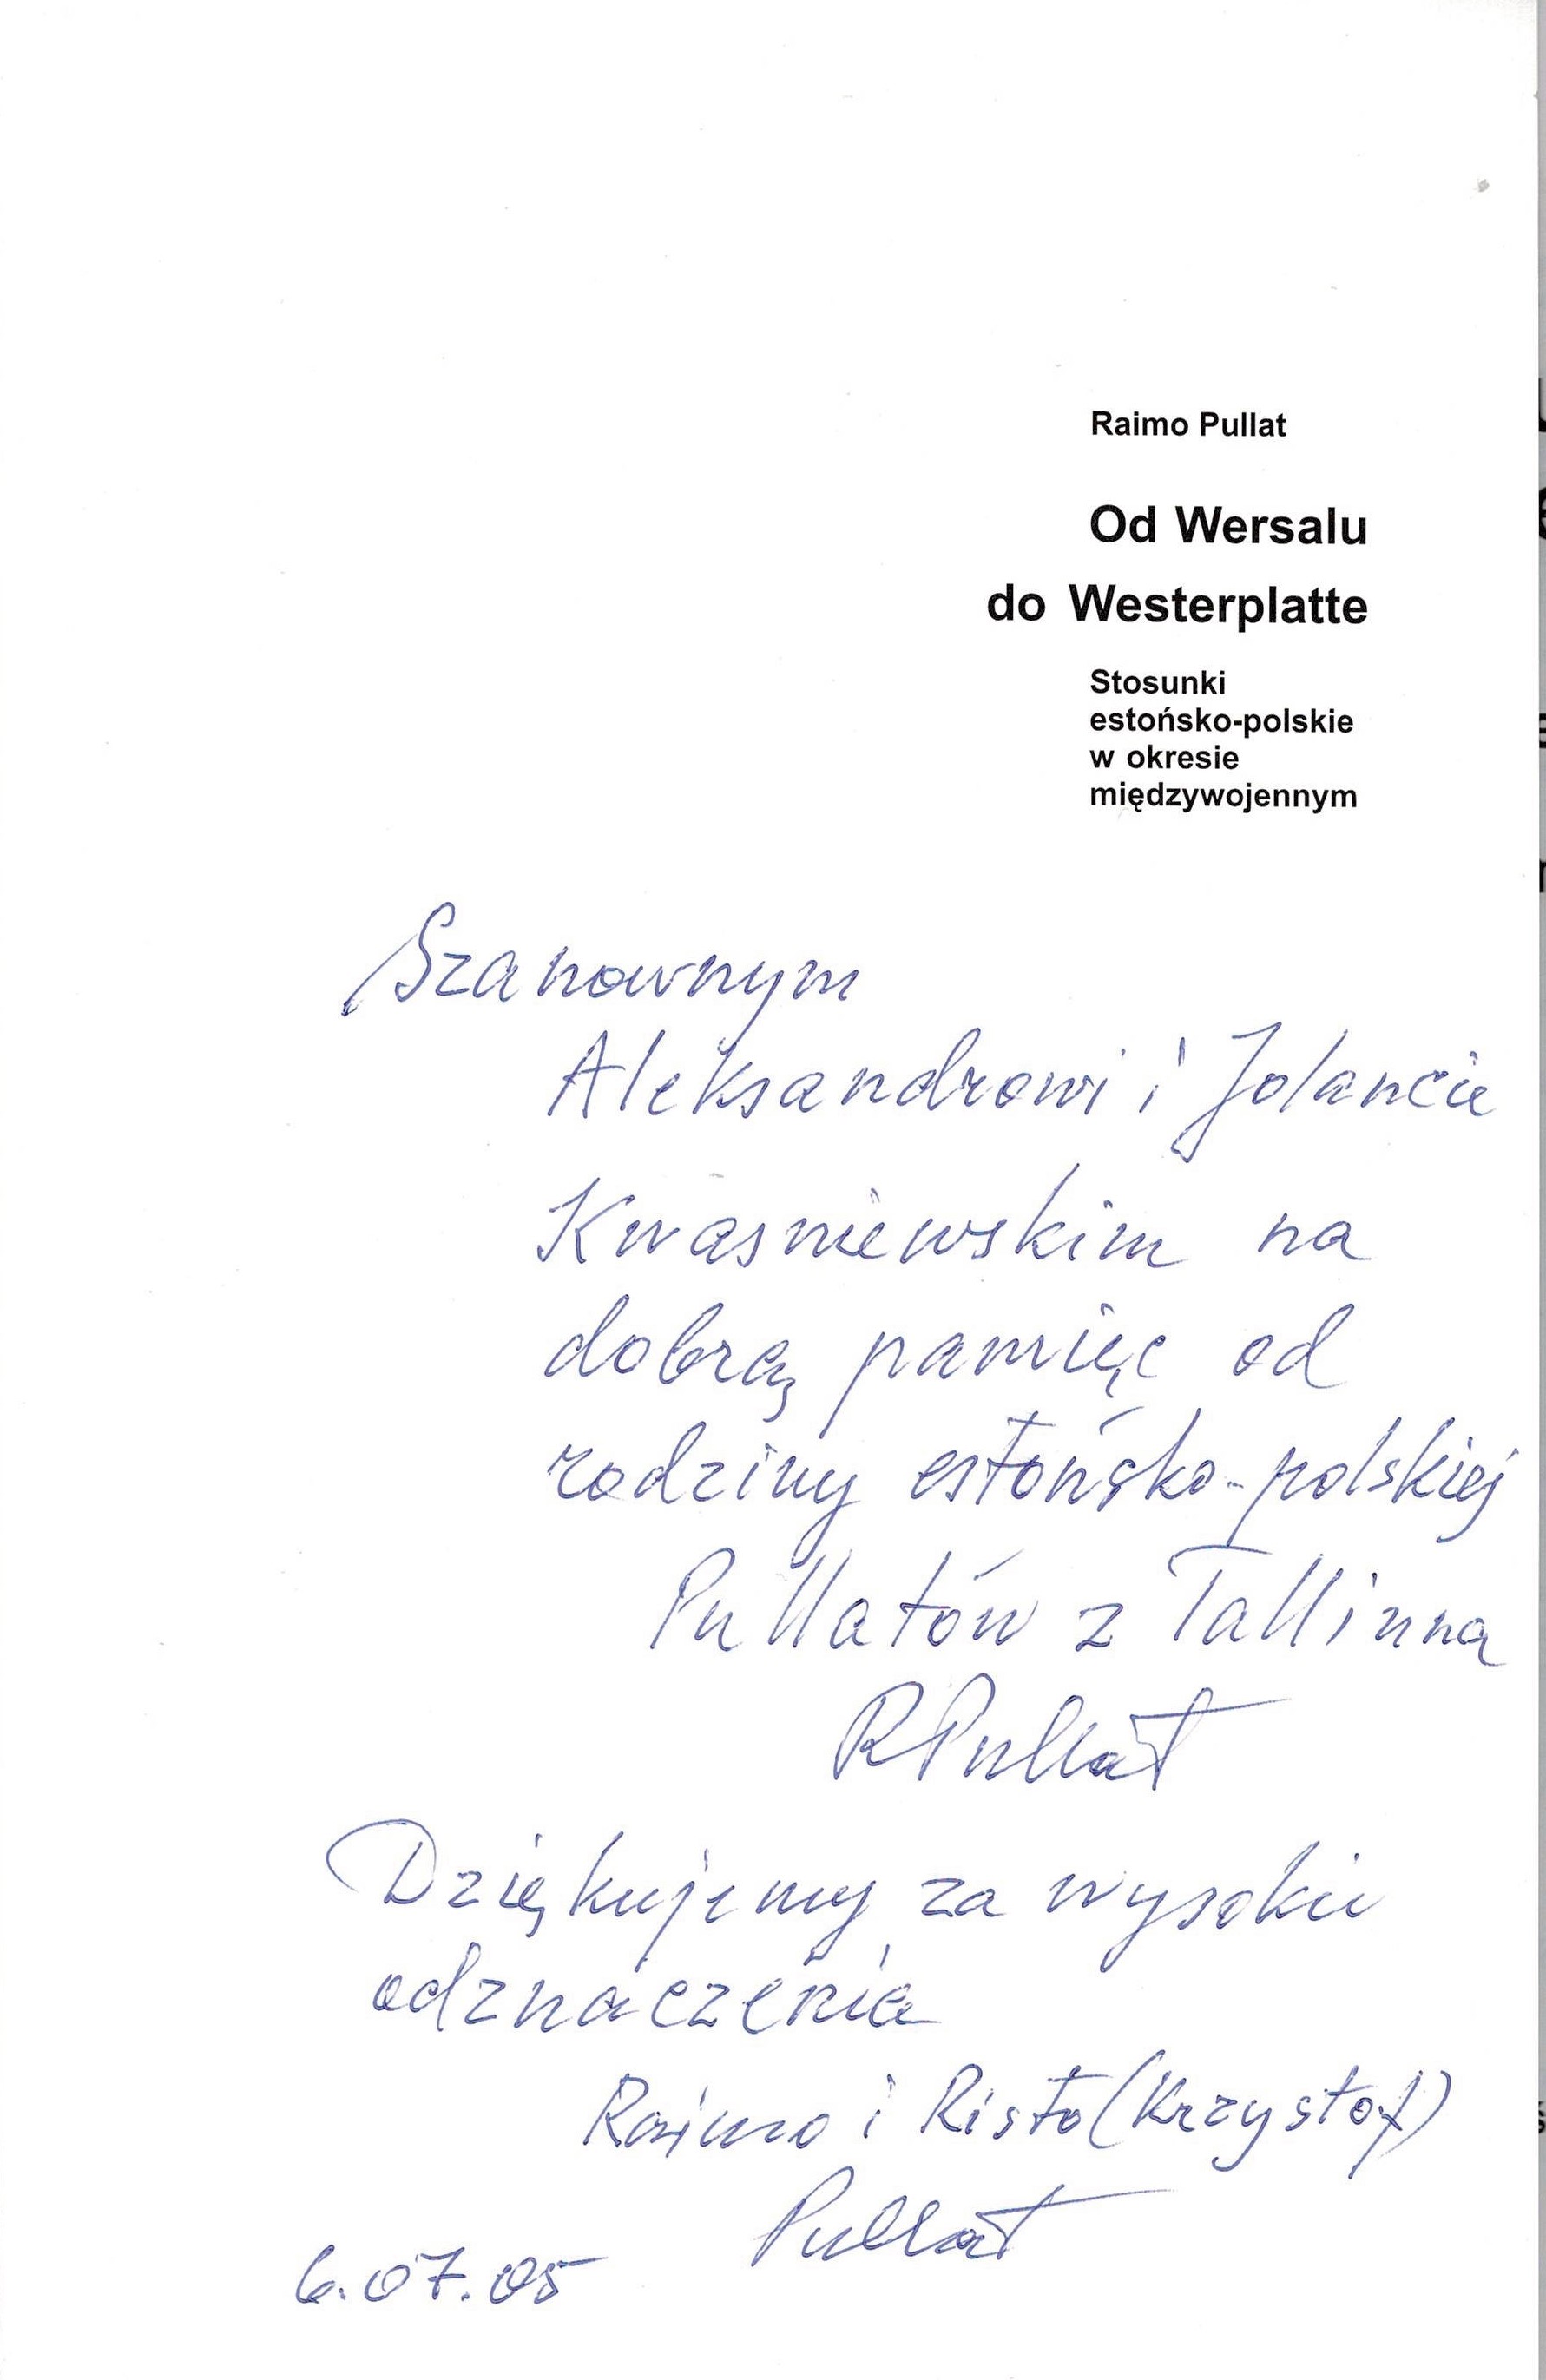 Raimo Pullat
Od Wersalu
do Westerplatte
Stosunki
estońsko-polskie
w okresie
międzywojennym
Szanownym
Aleksandrowi i Jolancie
Kwasniewskim na
dobrą pamięc od
rodziny estońsko-polskiej
Pullatów z Tallinna
RPullat
Dziękujemy za wysokie
odznaczenia
Raimo i Risto (Krzystof)
Pullat
6.07.05